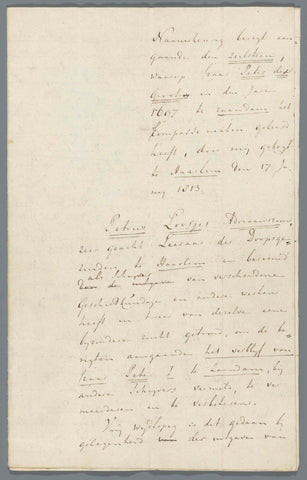 Naauwkeurig berigt aan-
gaande den zeilsteen,
waarop Czaar Peter de
Groote in den Jare
1697 te Zaandam het
Kompasse maken geleerd
heeft, door mij gekogt
te Haarlem den 17 Ja-
nuy 1813.
Petrus Loosjes Adriaanszoon,
zeer geacht Leeraar der Doopsge-
zinden te Haarlem en beroemd
als Schrijver
van verscheidene
Geschiedkundige en andere werken
heeft in twee van dezelve eene
bijzondere zucht getoond, om de be-
rigten aangaande het verblijf van
Czaar Peter I te Zaandam, bij
andere Schrijvers vermeld, te ver-
meerderen en te verbeteren.
Vrij wijdlopig is dit gedaan bij
gelegenheid der uitgaven van